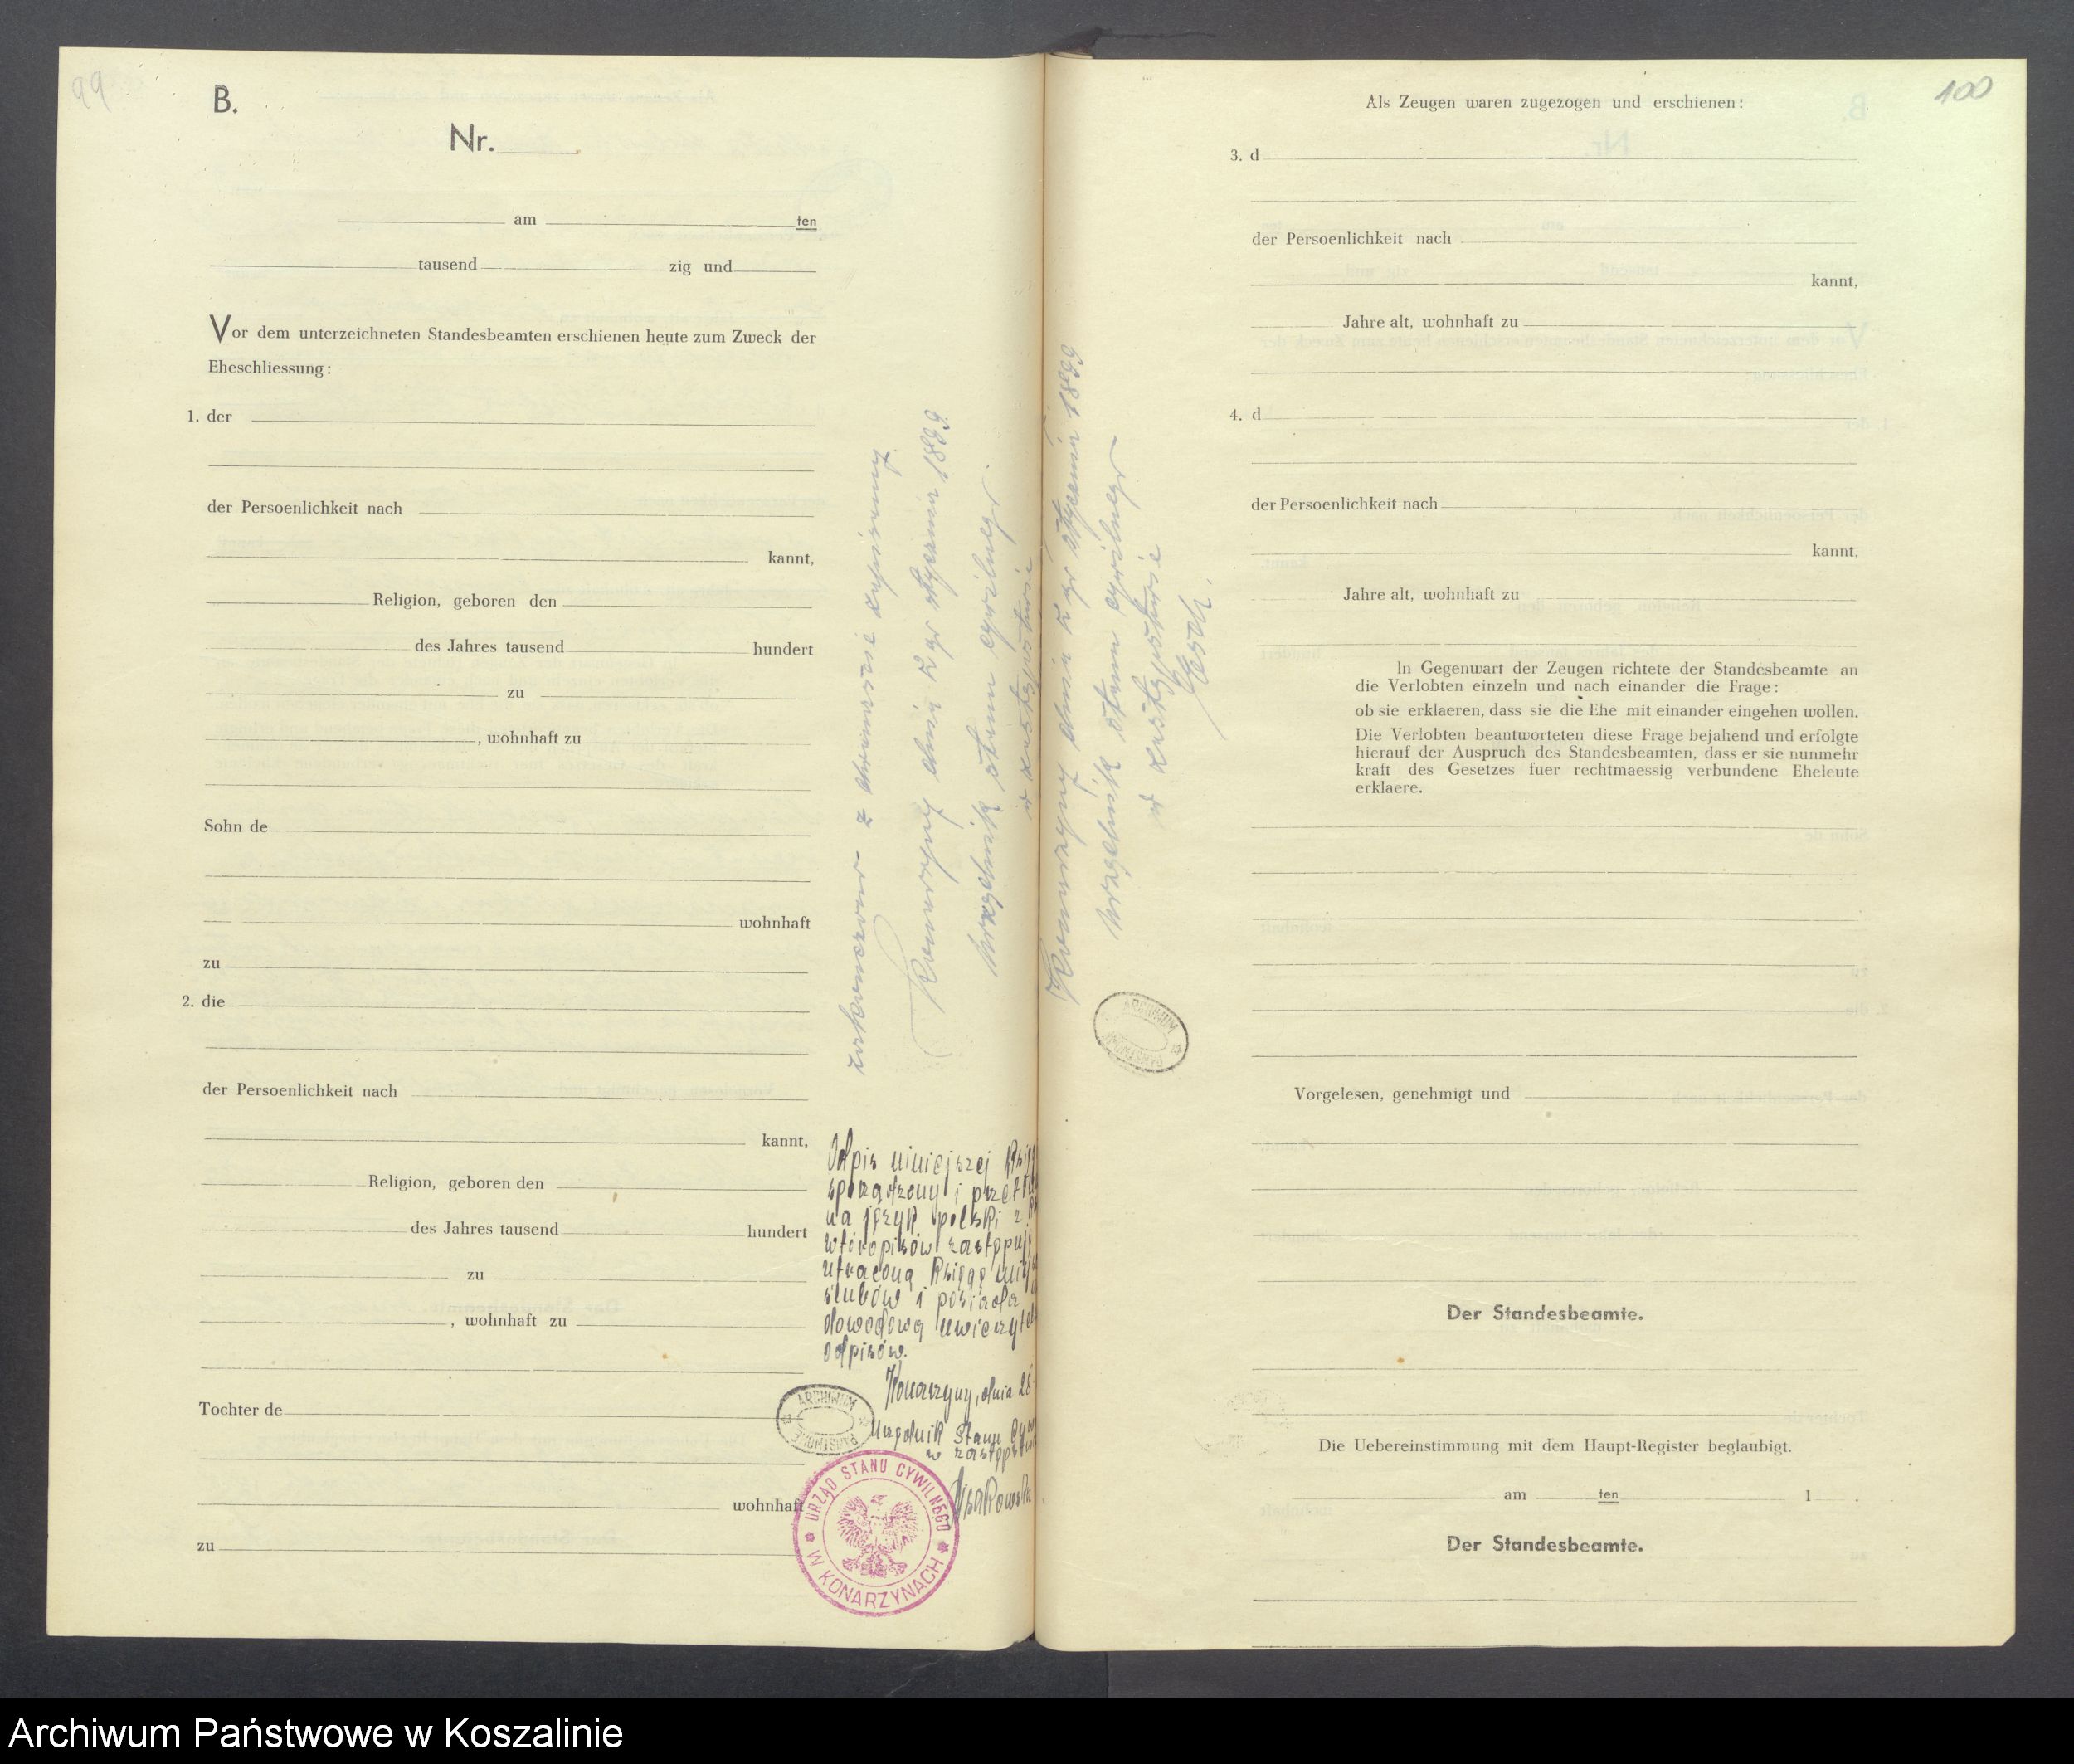 99
B.
Nr.
am ten
tausend zig und
Vor dem unterzeichneten Standesbeamten erschienen heute zum Zweck der
Eheschliessung:
1. der
der Persoenlichkeit nach
kannt,
Religion, geboren den
des Jahres tausend hundert
zu
, wohnhaft zu
Sohn de
wohnhaft
zu
2. die
der Persoenlichkeit nach
kannt,
Religion, geboren den
des Jahres tausend hundert
zu
, wohnhaft zu
Tochter de
wohnhaft
zu
Konarzyny dnia stycznia 1899
Urzędnik stanu cywilnego
w zastępstwie
Odpis niniejszej
sporządzony i
na język polski z
wtóropisów
utraconą Księgę
ślubów i posiada
dowodową
odpisów.
Konarzyny, dnia 28
Urzędnik Stanu
w
ARCHIWUM
PAŃSTWOWE
URZĄD STANU CYWILNEGO
W KONARZYNACH
Konarzyny dnia stycznia 1899
Urzędnik stanu cywilnego
w zastępstwie
ARCHIWUM
PAŃSTWOWE
100
Als Zeugen waren zugezogen und erschienen:
3. d
der Persoenlichkeit nach
kannt,
Jahre alt, wohnhaft zu
4. d
der Persoenlichkeit nach
kannt,
Jahre alt, wohnhaft zu
In Gegenwart der Zeugen richtete der Standesbeamte an
die Verlobten einzeln und nach einander die Frage:
ob sie erklaeren, dass sie die Ehe mit einander eingehen wollen.
Die Verlobten beantworteten diese Frage bejahend und erfolgte
hierauf der Auspruch des Standesbeamten, dass er sie nunmehr
kraft des Gesetzes fuer rechtmaessig verbundene Eheleute
erklaere.
Vorgelesen, genehmigt und
Der Standesbeamte.
Die Uebereinstimmung mit dem Haupt-Register beglaubigt.
am ten 1 .
Der Standesbeamte.
Archiwum Państwowe w Koszalinie